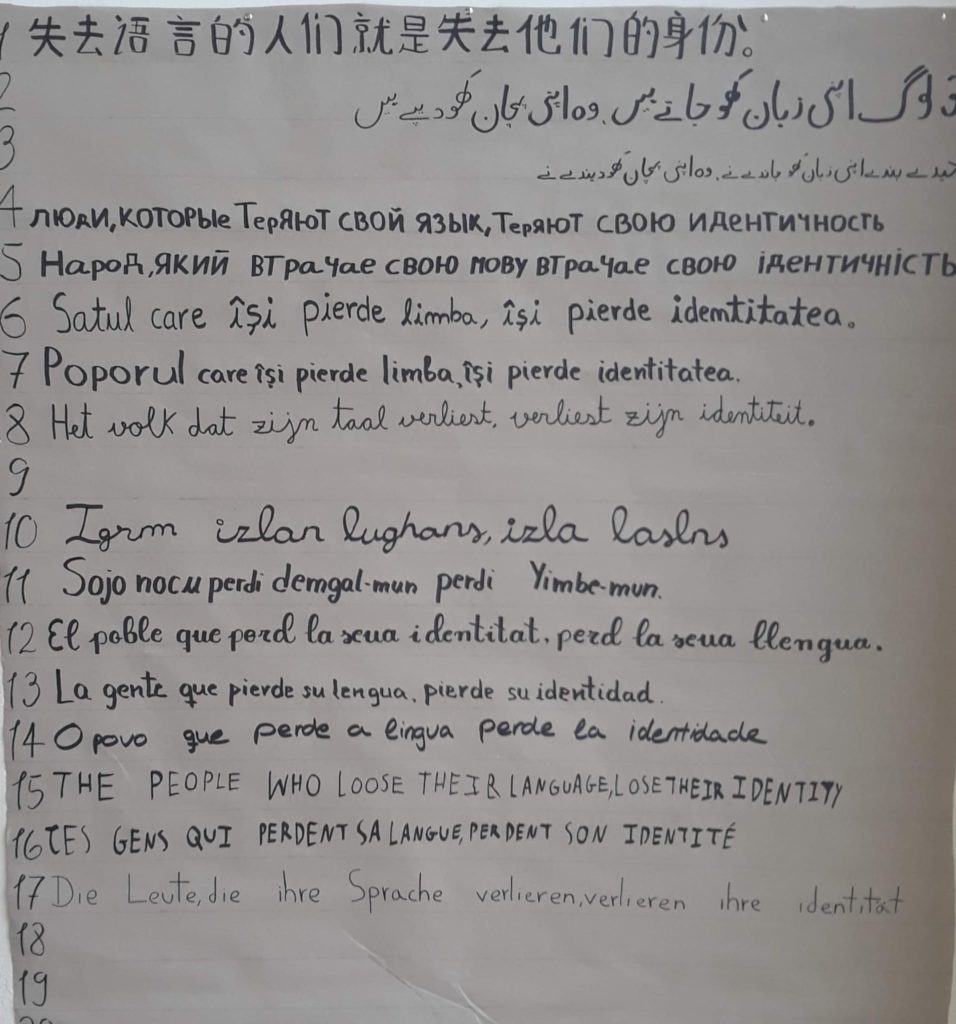 1 失去语言的人们就是失去他们的身份。
2 جو لوگ اپنی زبان کھو جاتے ہیں، وہ اپنی پہچان کھو دیتے ہیں
3
4 ЛЮДИ, КОТОРЫЕ ТеРЯЮТ СВОЙ ЯЗЫК, ТеРЯЮТ СВОЮ ИДЕНТИЧНОСТЬ
5 НАРОД, ЯКИЙ ВТРАЧАЕ СВОЮ МОВУ ВТРАЧАЕ СВОЮ ІДЕНТИЧНІСТЬ
6 Satul care îşi pierde limba, îşi pierde idemtitatea.
7 Poporul care îşi pierde limba, îşi pierde identitatea.
8 Het volk dat zijn taal verliest, verliest zijn identiteit.
9
10 Igrm izlan lughans, izla laslns
11 Sojo nocu perdi demgal-mun perdi Yimbe-mun.
12 El poble que perd la seua identitat, perd la seua llengua.
13 La gente que pierde su lengua, pierde su identidad.
14 O povo que perde a lingua perde la identidade
15 THE PEOPLE WHO LOOSE THEIR LANGUAGE, LOSE THEIR IDENTITY
16 CES GENS QUI PERDENT SA LANGUE, PERDENT SON IDENTITÉ
17 Die Leute, die ihre Sprache verlieren, verlieren ihre identität
18
19